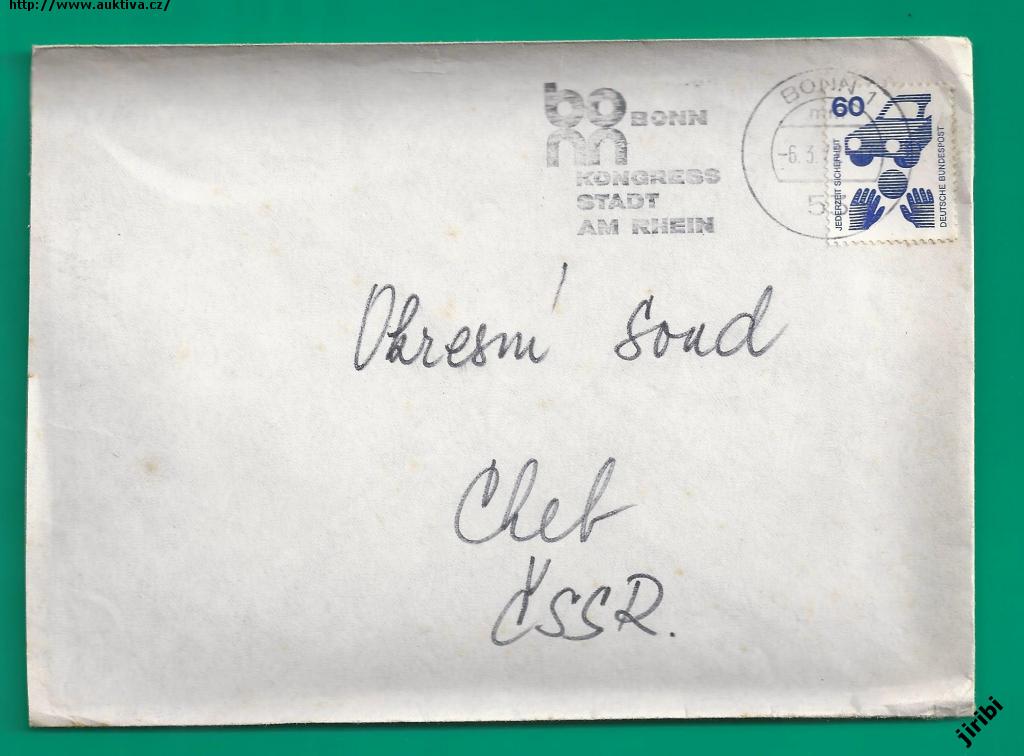 http://www.auktiva.cz/
bo
nn
BONN
KONGRESS
STADT
AM RHEIN
BONN 1
-6.3.
60
JEDERZEIT SICHERHEIT
DEUTSCHE BUNDESPOST
Okresní Soud
Cheb
ČSSR.
jiribi